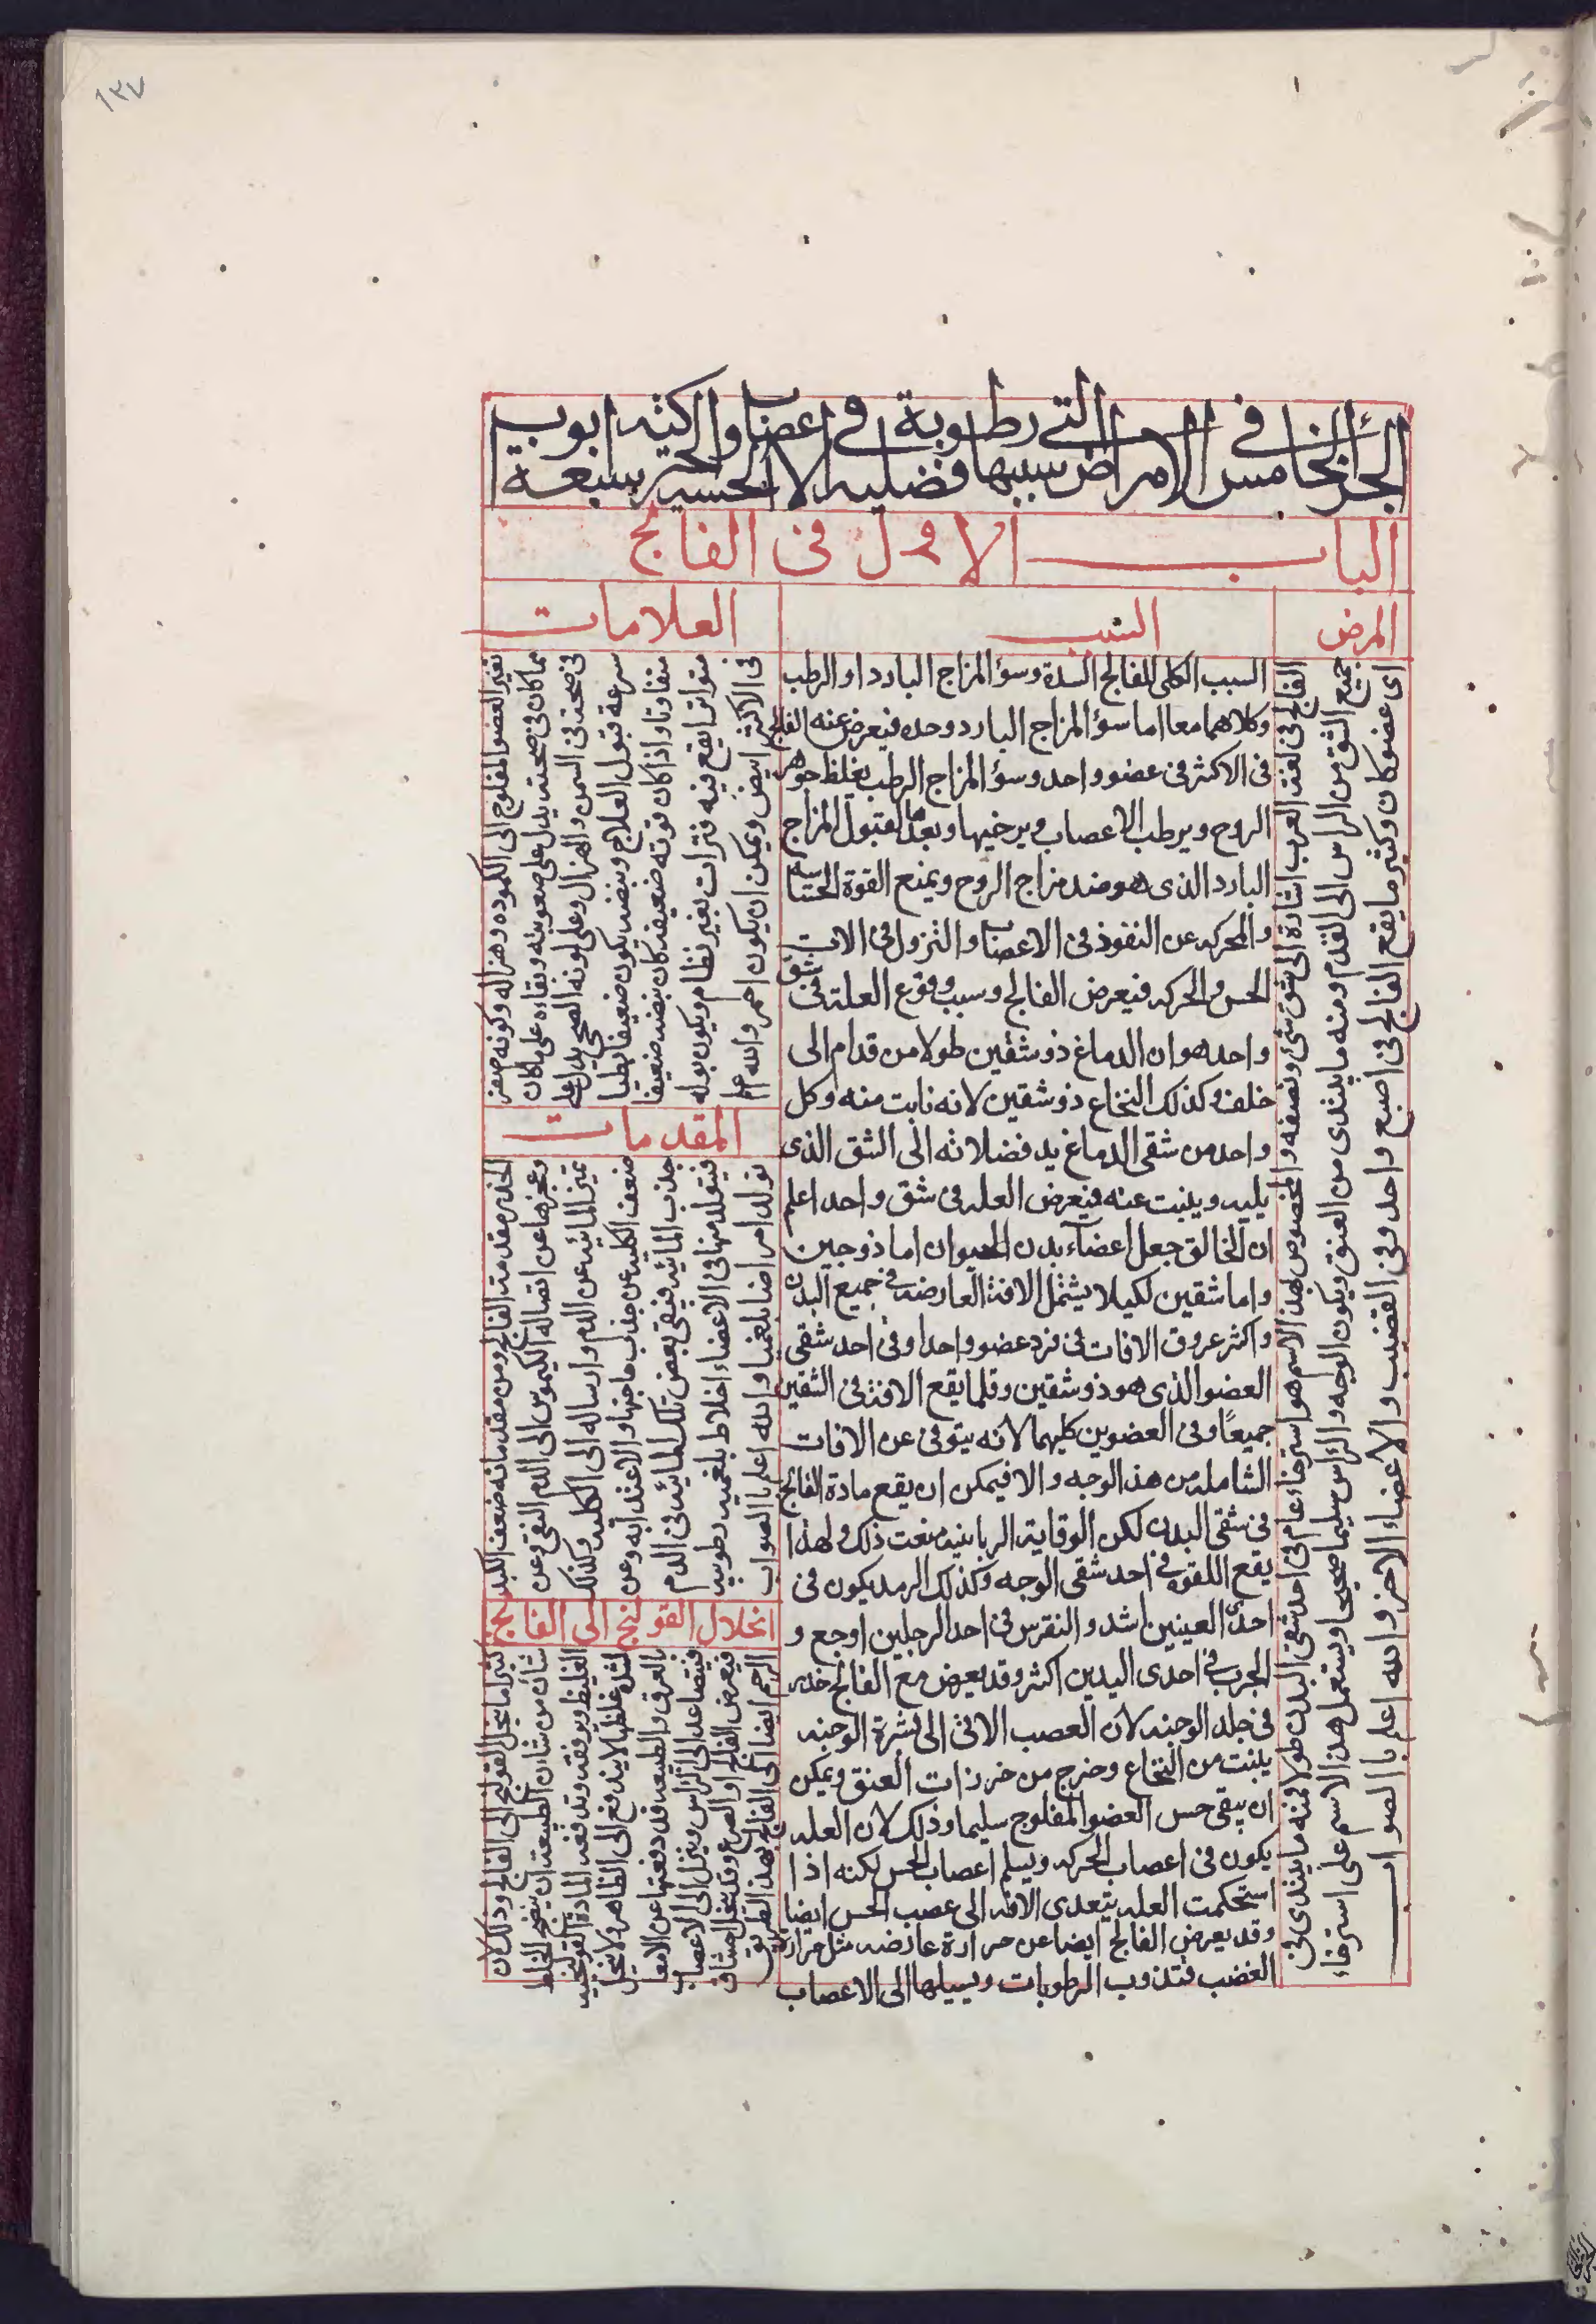 ١٣٧
الجزء الخامس في الامراض التي سببها رطوبة فضليه في الاعصاب الحسيه والحركيه سبعة ابواب
الباب الاول فى الفالج
المرض
الفالج فى لغة العرب اشارة الى شق شئ ونصفه والمخصوص بهذا الاسم هو استرخاء عام فى احد شقى البدن طولا فمنه ما يبتدى فى
جميع الشق من الراس الى القدم ومنه ما يبتدى من العنق ويكون الوجه والراس سليما صحيحا ويستعمل هذا الاسم على استرخاء
اى عضو كان وكثير ما يقع الفالج فى اصبع واحد وفى القضيب والاعضاء الاخر والله اعلم بالصواب
السبب
السبب الكلى للفالج السدة وسؤ المزاج البارد او الرطب
وكلاهما معا اما سؤ المزاج البارد وحده فيعرض عنه الفالج
فى الاكثر فى عضو واحد وسؤ المزاج الرطب يغلظ جوهر
الروح ويرطب الاعصاب ويرخيها ويعدها لقبول المزاج
البارد الذى هو ضد مزاج الروح ويمنع القوة الحساسه
والمحركه عن النفوذ فى الاعصاب والنزول فى الات
الحس والحركه فيعرض الفالج وسبب وقوع العلة فى شق
واحد هو ان الدماغ ذو شقين طولا من قدام الى
خلف وكذلك النخاع ذو شقين لانه نابت منه وكل
واحد من شقى الدماغ يد فضلاته الى الشق الذى
يليه وينبت عنه فيعرض العله فى شق واحد اعلم
ان الخالق جعل اعضاء بدن الحيوان اما ذو جين
واما شقين لكيلا يشتمل الافة العارضه فى جميع البدن
واكثر عروق الافات فى فرد عضو واحد او فى احد شقى
العضو الذى هو ذو شقين وقلما يقع الافة فى الشقين
جميعًا وفى العضوين كليهما لانه يتوقى عن الافات
الشامله من هذا الوجه والا فيمكن ان يقع مادة الفالج
فى شقى البدن لكن الوقاية الربانيه منعت ذلك ولهذا
يقع اللقوه فى احد شقى الوجه وكذلك الرمد يكون فى
احدى العينين اشد والنقرس فى احد الرجلين اوجع و
الجرب فى احدى اليدين اكثر وقد يعرض مع الفالج خدر
فى جلد الوجنه لان العصب الاتى الى بشرة الوجنه
ينبت من النخاع وخرج من خرزات العنق ويمكن
ان يبقى حس العضو المفلوج سليما وذلك لان العله
يكون فى اعصاب الحركه ويسلم اعصاب الحس لكنه اذا
استحكمت العله يتعدى الافه الى عصب الحس ايضا
وقد يعرض الفالج ايضا عن حرارة عارضه مثل حرارة
الغضب فتذوب الرطوبات ويسيلها الى الاعصاب
العلامات
تغير العضو المفلوج الى الكموده وهزاله وكونه صفر
مما كان فى صحته يدل على صعوبته وبقاءه على ما كان
فى صحته فى السمن والهزال وعلى لونه الصحى يدل على
سرعة قبول العلاج ونبضه يكون ضعيفا بطيا
متفاوتا واذا كان قوته ضعيفه كان نبضه ضعيفا
متواترا يقع فيه فترات بغير نظام ويكون بوله
فى الاكثر ابيض ويمكن ان يكون احمر والله اعلم
المقدمات
الخدر مقدمة الفالج ومن مقدماته ضعف الكبد
وعجزها عن ايصاله الكيموس الى الدم النقى وعن
تميز المائيه عن الدم وارساله الى الكليه وكذلك
ضعف الكليه عن جذب ما جنتها والاغتذا به وعن
جذب المائيه فيبقى بعض تلك المائيه فى الدم
فيتولد منها فى الاعضاء اخلاط بلغميه رطوبيه
تولد امراضا بلغميا والله اعلم بالصواب
انحلال القولنج الى الفالج
كثيرا ما ينحل القولنج الى الفالج وذلك لان
شان من شان الطبيعة ان ينضج الخلط
الغليظ ويرققه وتدفعه المادة القولنجيه
لشدة غلظها لا يندفع الى الظاهر ولا ينحل
بالعرق والطبيعه قد دفعتها عن الامعا
فيتصاعد الى الراس وينزل الى الاعصاب
فيعرض الفالج او الصرع وقد ينحل اختناق
الرحم ايضا الى الفالج بهذا الطريق